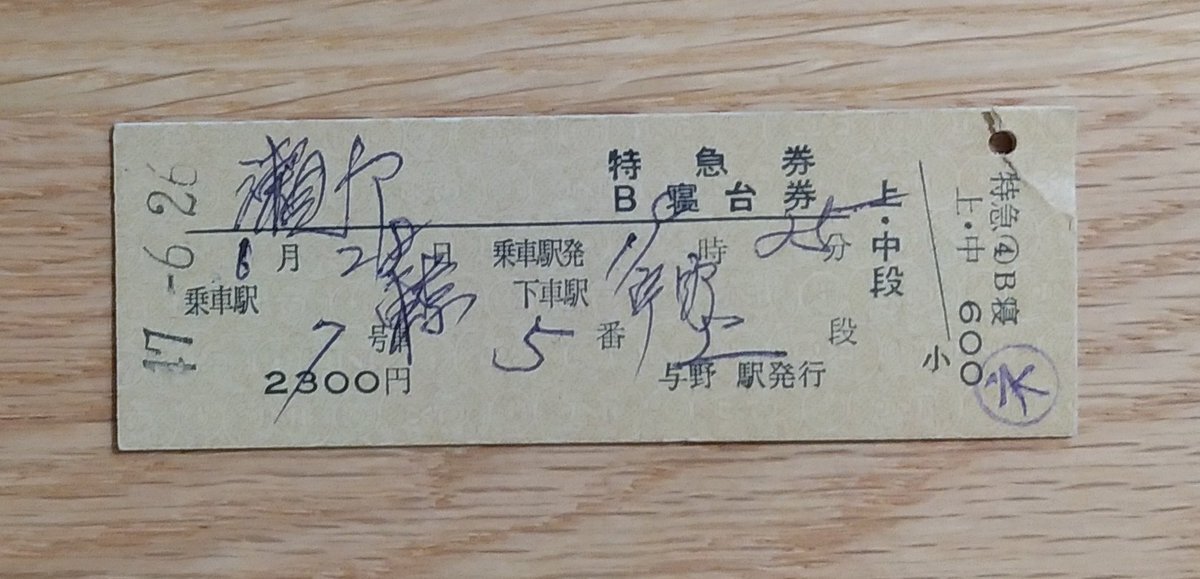 瀬戸
特急券
B寝台券
上・中段
6月28日 乗車駅発 19時25分
乗車駅 東京 下車駅
7号 5番 上段
2300円 与野 駅発行
47-6-26
特急④B寝
上・中 600
小